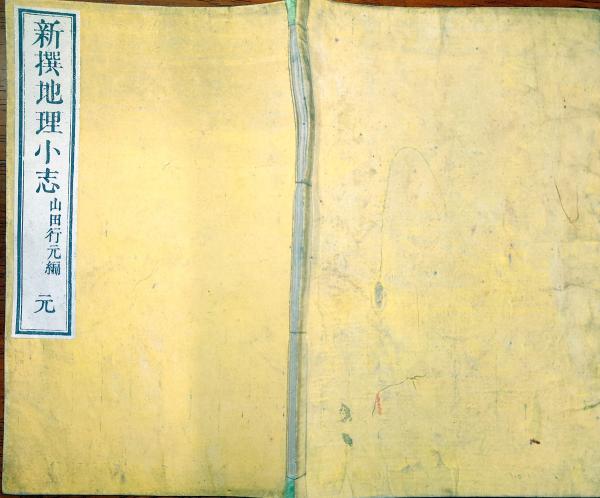 新撰地理小志
山田行元編
元